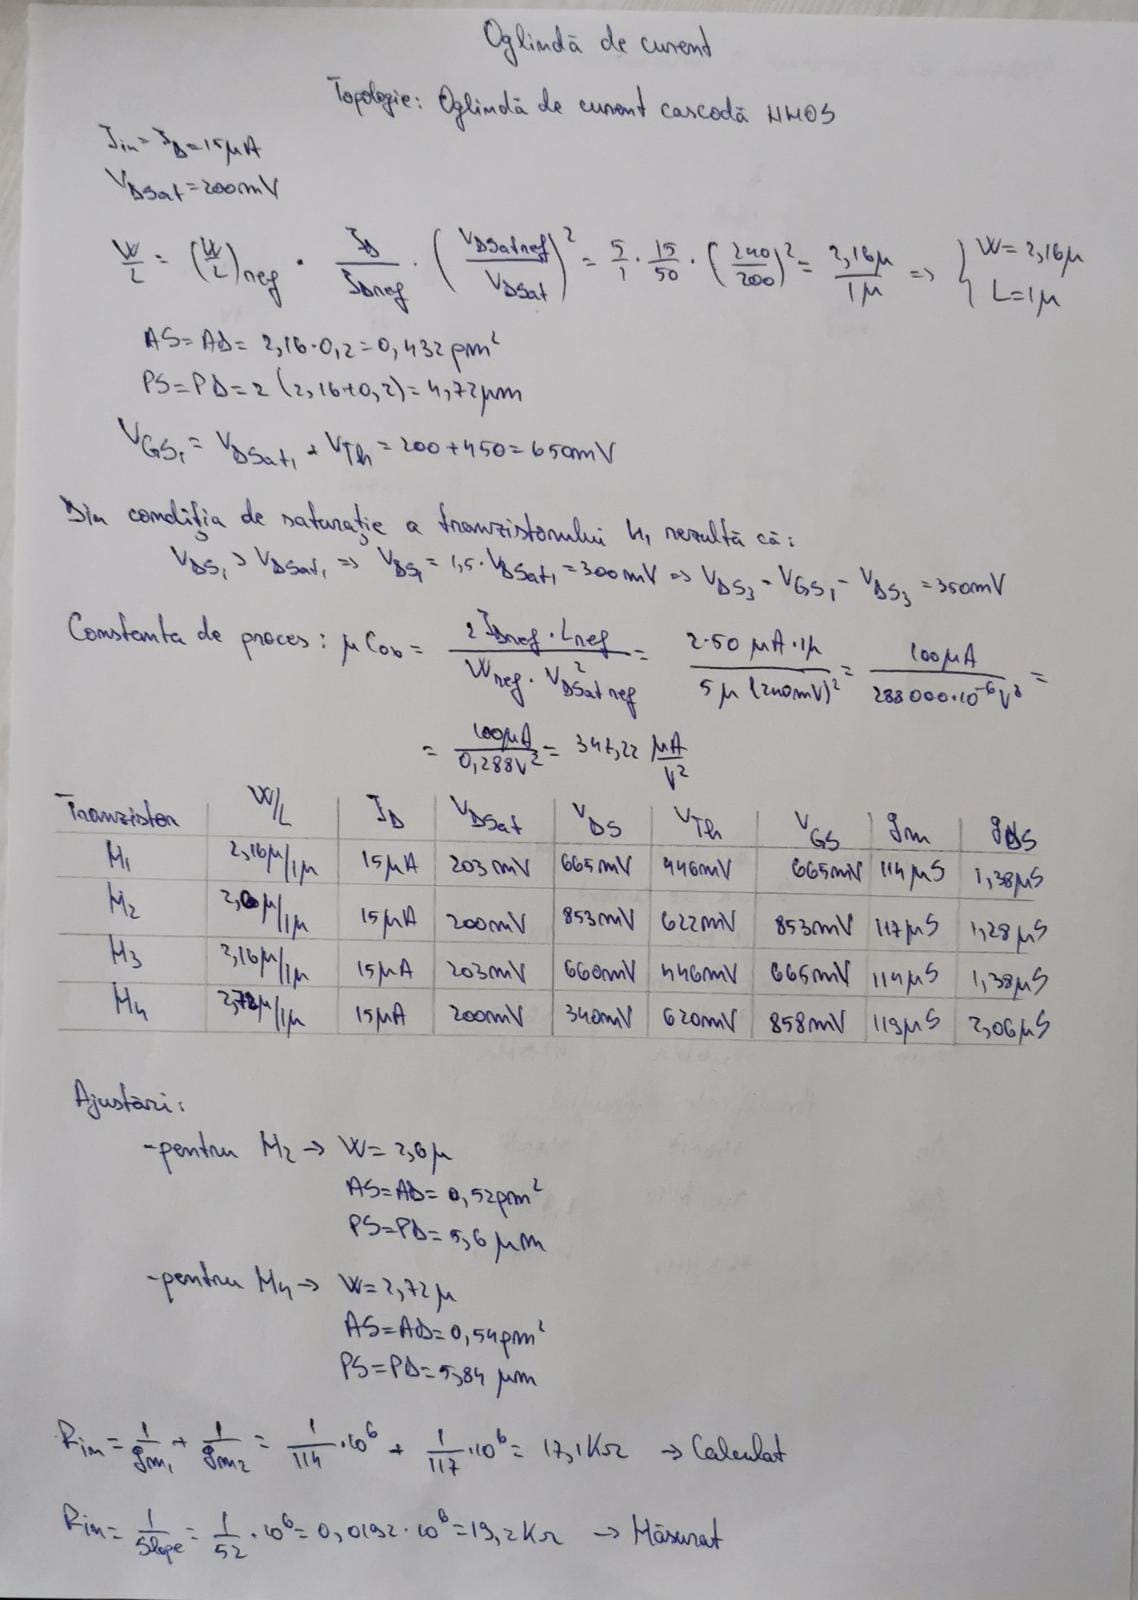 Oglindă de curent
Topologie: Oglindă de curent cascodă NMOS
Iin = ID = 15μA
VDSat = 200mV
W/L = (W/L)ref · ID/IDref · (VDSatref/VDSat)² = 5/1 · 15/50 · (240/200)² = 2,16μ/1μ => { W = 2,16μ
L = 1μ
AS = AD = 2,16·0,2 = 0,432 pm²
PS = PD = 2 (2,16+0,2) = 4,72μm
VGS1 = VDSat1 + VTh = 200 + 450 = 650mV
Din condiția de saturație a tranzistorului M1 rezultă că:
VDS1 > VDSat1 => VDS1 = 1,5·VDSat1 = 300mV => VDS3 = VGS1 - VDS3 = 350mV
Constanta de proces: μCox = 2 IDref · Lref / Wref · VDSatref² = 2·50 μA·1μ / 5μ (240mV)² = 100μA / 288000·10⁻⁶V² =
= 100μA / 0,288V² = 347,22 μA/V²
Tranzistor W/L ID VDSat VDS VTh VGS gm gDS
M1 2,16μ/1μ 15μA 203mV 665mV 446mV 665mV 114μS 1,38μS
M2 2,6μ/1μ 15μA 200mV 853mV 622mV 853mV 117μS 1,28μS
M3 2,16μ/1μ 15μA 203mV 660mV 446mV 665mV 114μS 1,38μS
M4 2,72μ/1μ 15μA 200mV 340mV 620mV 858mV 119μS 2,06μS
Ajustări:
-pentru M2 → W = 2,6μ
AS=AD= 0,52pm²
PS=PD= 5,6 μm
-pentru M4 → W= 2,72μ
AS=AD= 0,54pm²
PS=PD= 5,84 μm
Rin = 1/gm1 + 1/gm2 = 1/114 ·10⁶ + 1/117 ·10⁶ = 17,1KΩ → Calculat
Rin = 1/Slope = 1/52 · 10⁶ = 0,0192 · 10⁶ = 19,2KΩ → Măsurat